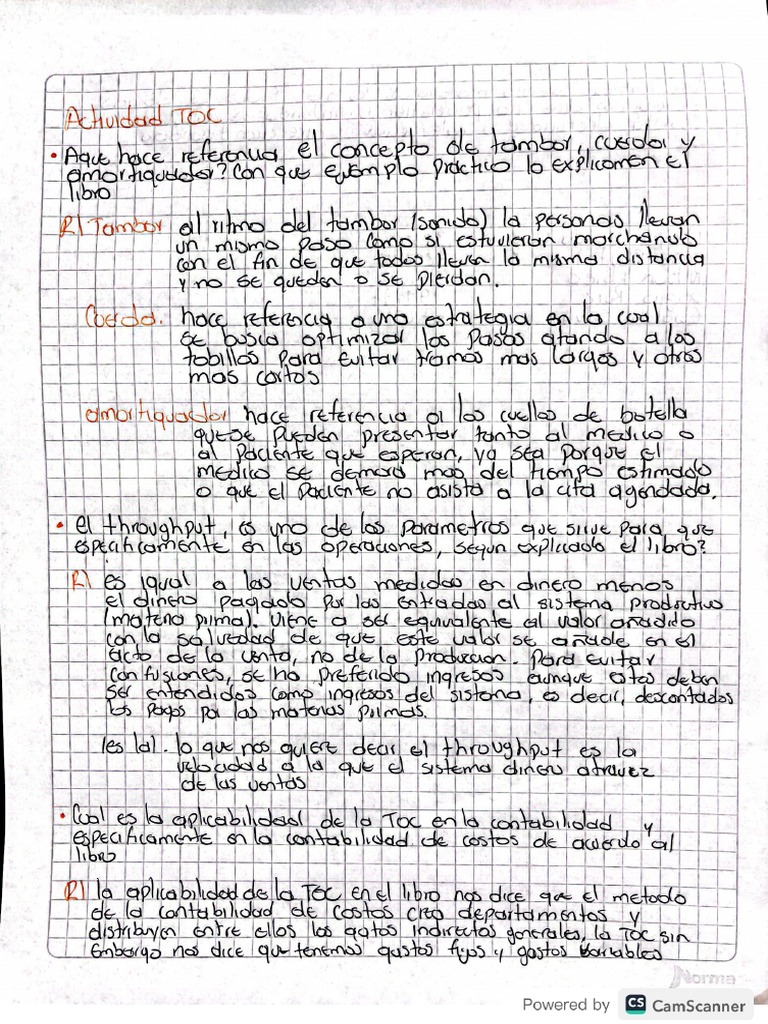 Actividad TOC
• Aque hace referencia el concepto de tambor, cuerda y
amortiguador? Con que ejemplo practico lo explicomen el
libro
R/ Tambor al ritmo del tambor (sonido) la personas llevan
un mismo paso como si estuvieran marchando
con el fin de que todos lleven la misma distancia
y no se queden o se pierdan.
Cuerda. hace referencia a una estrategia en la cual
se busca optimizar los pasos atando a los
tobillos para evitar tramos mas largos y otros
mas cortos
amortiguador hace referencia a los cuellos de botella
que se pueden presentar tanto al medico o
al paciente que esperan, ya sea porque el
medico se demora mas del tiempo estimado
o que el paciente no asista a la cita agendada.
• el throughput, es uno de los parametros que sirve para que
especificamente en las operaciones, segun explicado el libro?
R/ es igual a las ventas medidas en dinero menos
el dinero pagado por las entradas al sistema productivo
(materia prima). Viene a ser equivalente al valor añadido
con la salvedad de que este valor se añade en el
acto de la venta, no de la produccion. Para evitar
confusiones, se ha preferido ingresos aunque estos deben
ser entendidos como ingresos del sistema, es decir, descontados
los pagos por las materias primas.
(es la). lo que nos quiere decir el throughput es la
velocidad a la que el sistema dinero atravez
de las ventas
• Cual es la aplicabilidad de la TOC en la contabilidad y
especificamente en la contabilidad de costos de acuerdo al
libro
R/ la aplicabilidad de la TOC en el libro nos dice que el metodo
de la contabilidad de costos crea departamentos y
distribuyen entre ellos los gatos indirectos generales, la TOC sin
embargo nos dice que tenemos gastos fijos y gastos variables
Norma
Powered by CS CamScanner